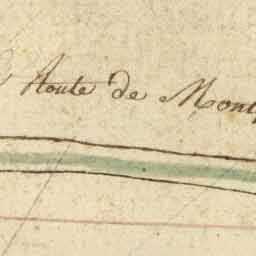 Route de Mont